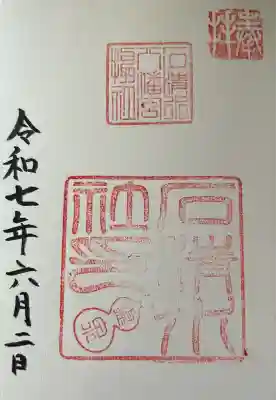 奉拝
石清水
八幡宮
攝社
石清水
社
令和七年六月二日